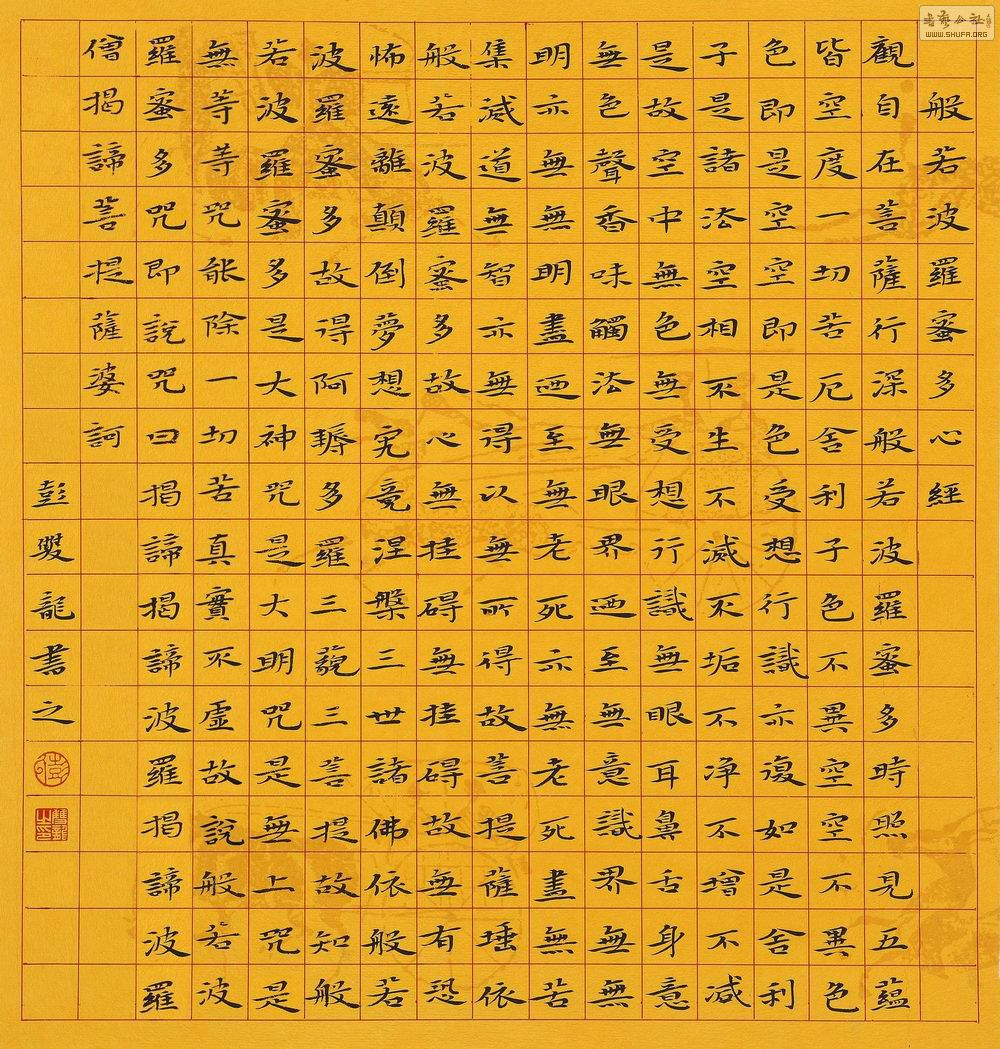 般若波羅蜜多心經
觀自在菩薩行深般若波羅蜜多時照見五蘊
皆空度一切苦厄舍利子色不異空空不異色
色即是空空即是色受想行識亦復如是舍利
子是諸法空相不生不滅不垢不净不增不减
是故空中無色無受想行識無眼耳鼻舌身意
無色聲香味觸法無眼界迺至無意識界無無
明亦無無明盡迺至無老死亦無老死盡無苦
集滅道無智亦無得以無所得故菩提薩埵依
般若波羅蜜多故心無挂碍無挂碍故無有恐
怖遠離顛倒夢想究竟涅槃三世諸佛依般若
波羅蜜多故得阿耨多羅三藐三菩提故知般
若波羅蜜多是大神咒是大明咒是無上咒是
無等等咒能除一切苦真實不虛故說般若波
羅蜜多咒即說咒曰揭諦揭諦波羅揭諦波羅
僧揭諦菩提薩婆訶
彭雙龍書之
彭
雙龍之印
书艺公社
WWW.SHUFA.ORG